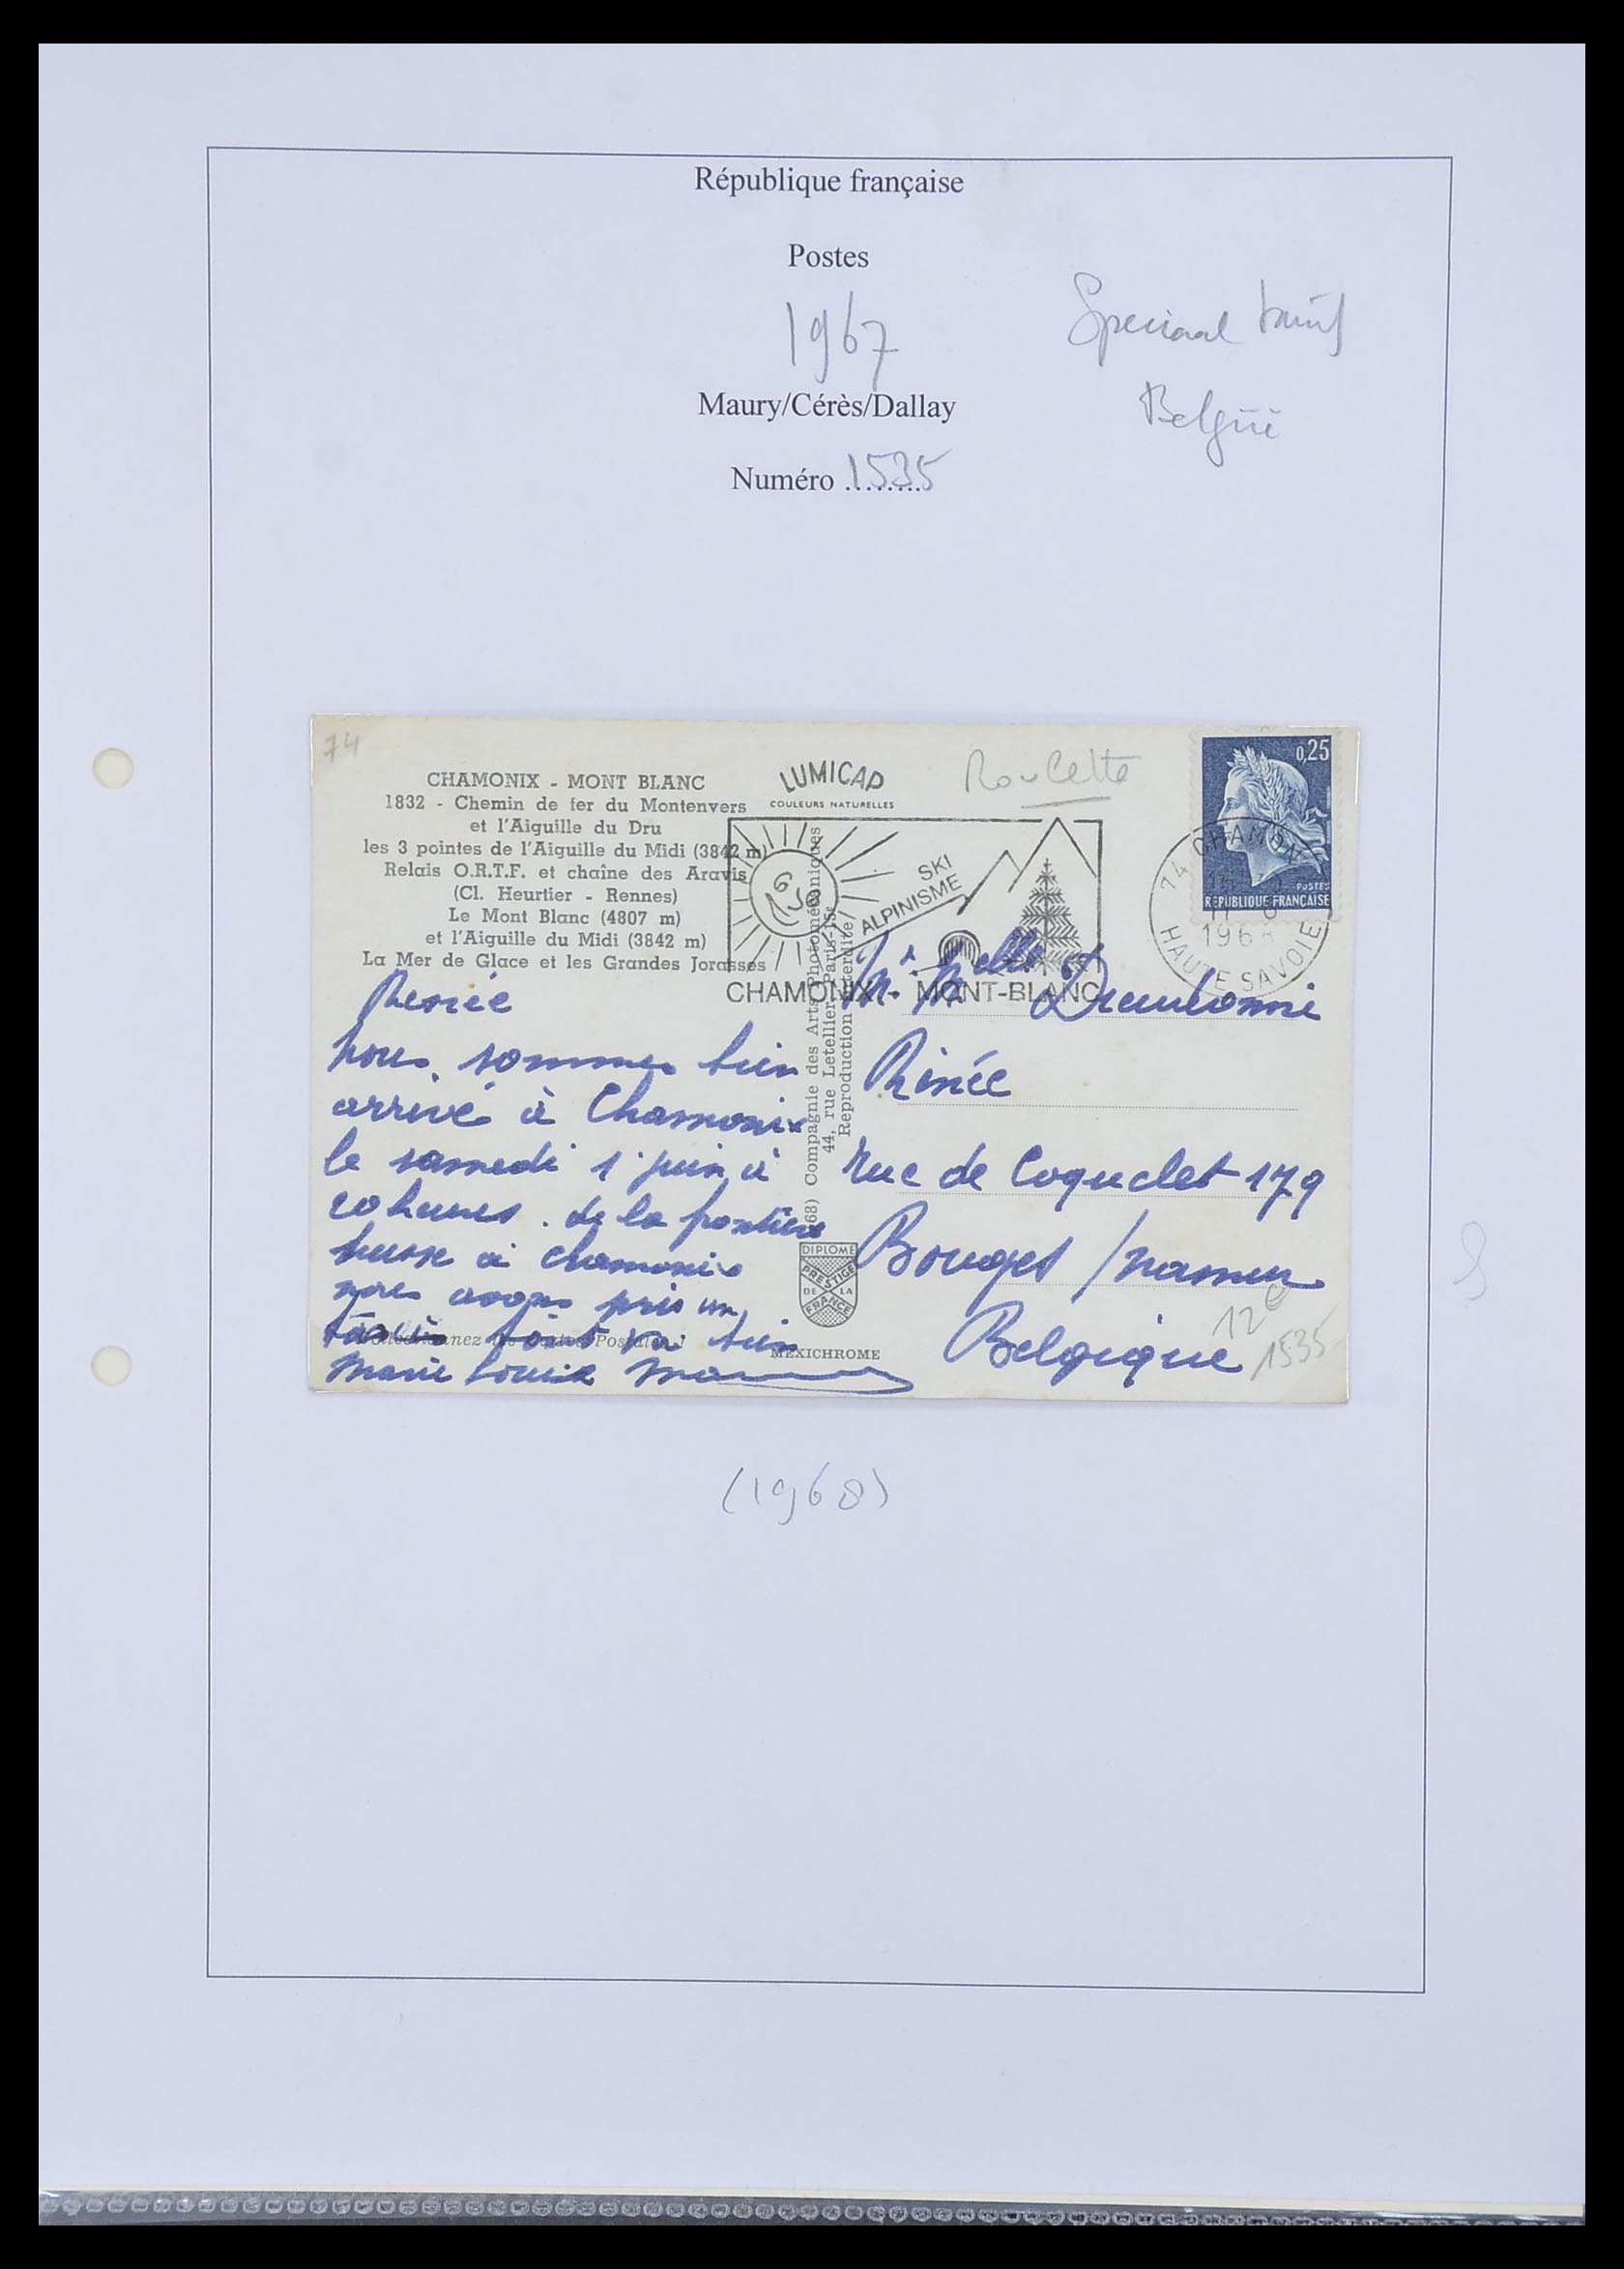 République française
Postes
1967
Maury/Cérès/Dallay
Numéro 1535
Speciaal tarief
België
74
CHAMONIX - MONT BLANC
1832 - Chemin de fer du Montenvers
et l'Aiguille du Dru
les 3 pointes de l'Aiguille du Midi (3842 m)
Relais O.R.T.F. et chaîne des Aravis
(Cl. Heurtier - Rennes)
Le Mont Blanc (4807 m)
et l'Aiguille du Midi (3842 m)
La Mer de Glace et les Grandes Jorasses
LUMICAP
COULEURS NATURELLES
Roulette
SKI
ALPINISME
CHAMONIX - MONT-BLANC
0,25
POSTES
REPUBLIQUE FRANÇAISE
74 CHAMON
1968
HAUTE SAVOIE
Renée
nous sommes bien
arrivé à Chamonix
le samedi 1 juin à
20 heures. de la frontière
Suisse à chamonix
nous avons pris un
tout va bien
Marie Louise
Compagnie des Arts Photomécaniques
44, rue Letellier Paris-15e
Reproduction interdite
DIPLOME
PRESTIGE
DE LA
FRANCE
MEXICHROME
Melle
Renée
Rue de Coquelet 179
Bouges / Namur
Belgique
12 €
1535
(1968)